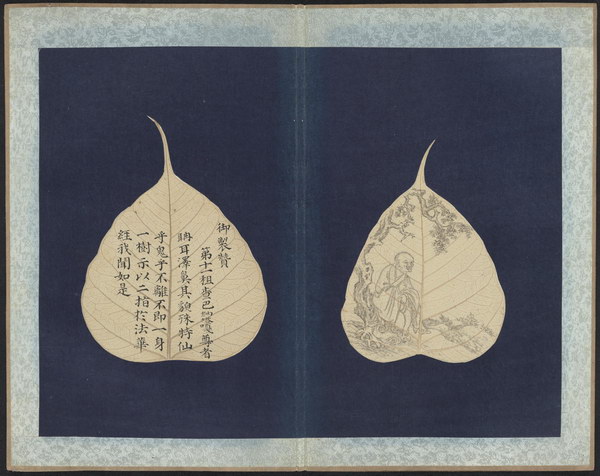 御製贊
第十一租查巴納塔嘎尊者
聃耳澤鼻其貌殊特仙
乎鬼乎不離不即一身
一樹示以二指於法華
經我聞如是